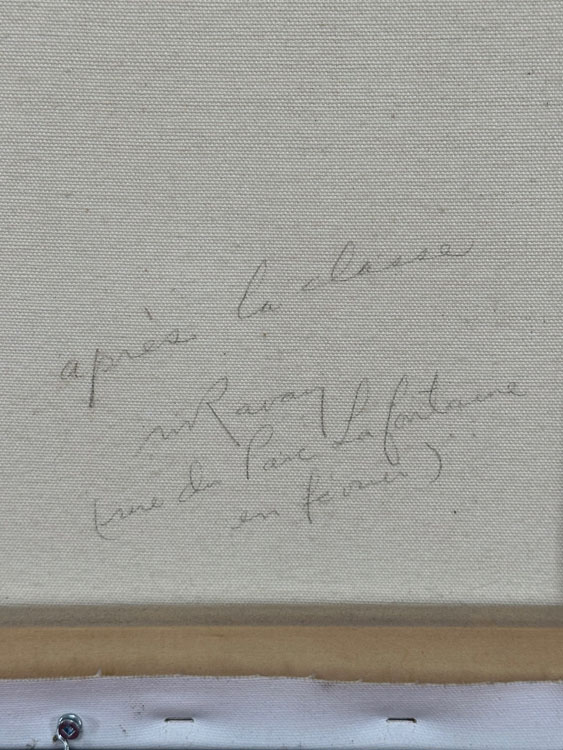 après la classe
m Ravary
(rue du Parc Lafontaine
en février)